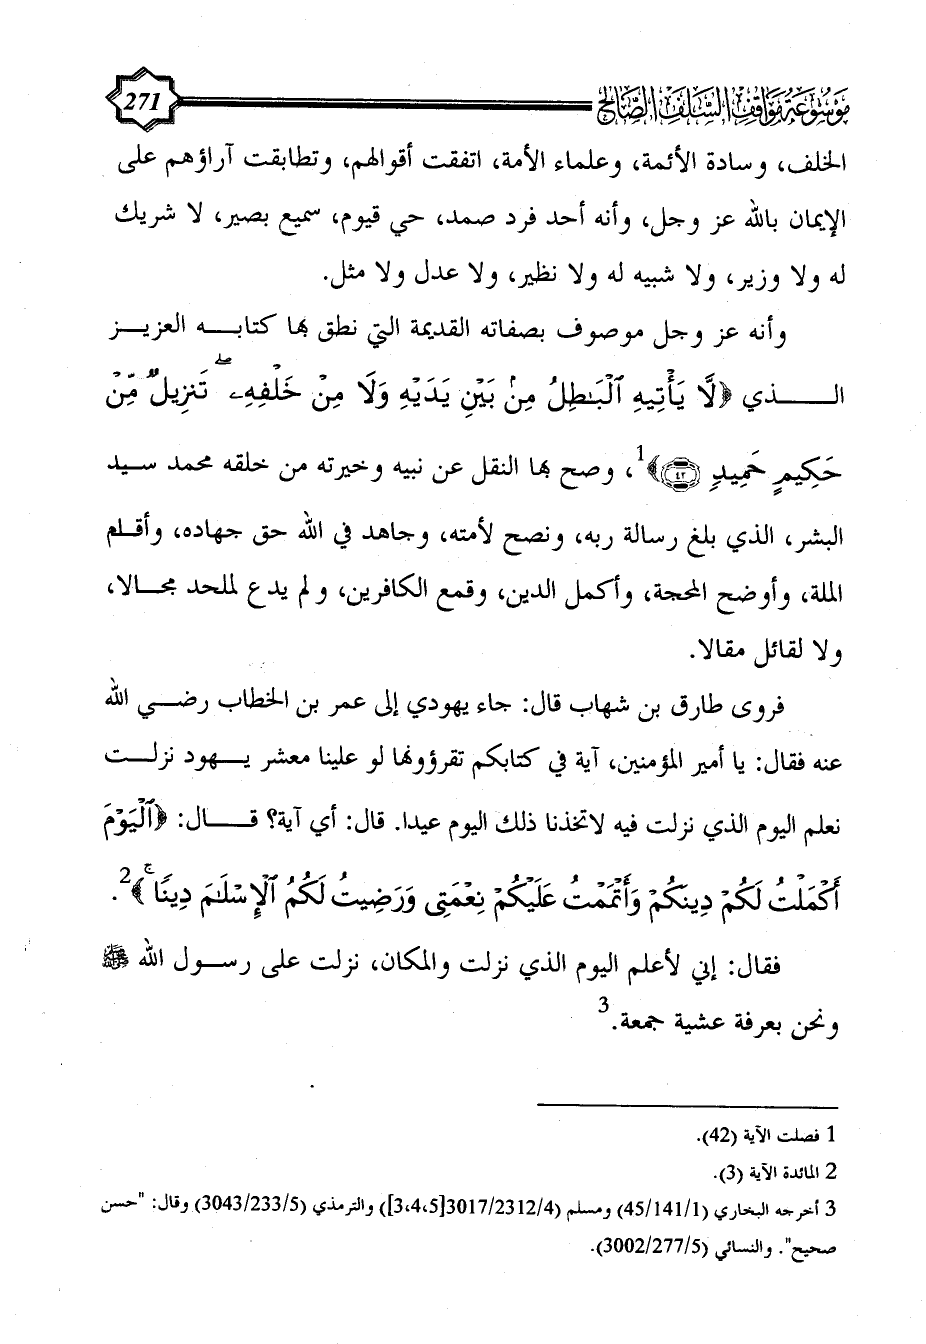 موسوعة مواقف السلف الصالح
271
الخلف، وسادة الأئمة، وعلماء الأمة، اتفقت أقوالهم، وتطابقت آراؤهم على
الإيمان بالله عز وجل، وأنه أحد فرد صمد، حي قيوم، سميع بصير، لا شريك
له ولا وزير، ولا شبيه له ولا نظير، ولا عدل ولا مثل.
وأنه عز وجل موصوف بصفاته القديمة التي نطق بها كتابـــه العزيـــز
الـــــذي ﴿لَّا يَأْتِيهِ ٱلْبَـٰطِلُ مِنۢ بَيْنِ يَدَيْهِ وَلَا مِنْ خَلْفِهِۦ ۖ تَنزِيلٌ مِّنْ
حَكِيمٍ حَمِيدٍ ٤٢﴾1، وصح بها النقل عن نبيه وخيرته من خلقه محمد سيد
البشر، الذي بلغ رسالة ربه، ونصح لأمته، وجاهد في الله حق جهاده، وأقـلم
الملة، وأوضح المحجة، وأكمل الدين، وقمع الكافرين، ولم يدع لملحد مجـالا،
ولا لقائل مقالا.
فروى طارق بن شهاب قال: جاء يهودي إلى عمر بن الخطاب رضـي الله
عنه فقال: يا أمير المؤمنين، آية في كتابكم تقرؤونها لو علينا معشر يـهود نزلـت
نعلم اليوم الذي نزلت فيه لاتخذنا ذلك اليوم عيدا. قال: أي آية؟ قــــال: ﴿ٱلْيَوْمَ
أَكْمَلْتُ لَكُمْ دِينَكُمْ وَأَتْمَمْتُ عَلَيْكُمْ نِعْمَتِى وَرَضِيتُ لَكُمُ ٱلْإِسْلَـٰمَ دِينًا ۚ﴾2.
فقال: إني لأعلم اليوم الذي نزلت والمكان، نزلت على رسـول الله ﷺ
ونحن بعرفة عشية جمعة.3
1 فصلت الآية (42).
2 المائدة الآية (3).
3 أخرجه البخاري (45/141/1) ومسلم (3017/2312/4[3،4،5]) والترمذي (3043/233/5) وقال: "حسن
صحيح". والنسائي (3002/277/5).